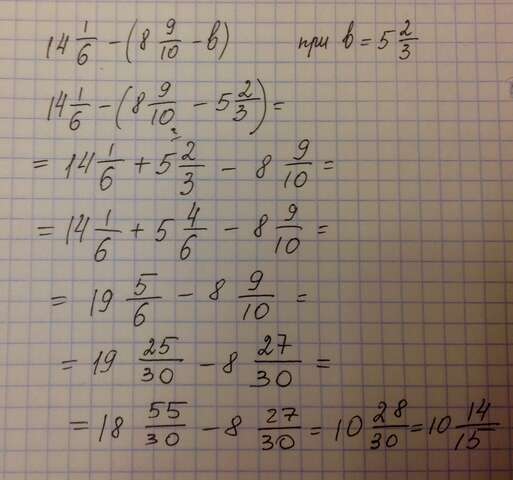 14 1/6 - (8 9/10 - b) при b = 5 2/3
14 1/6 - (8 9/10 - 5 2/3) =
= 14 1/6 + 5 2/3 - 8 9/10 =
= 14 1/6 + 5 4/6 - 8 9/10 =
= 19 5/6 - 8 9/10 =
= 19 25/30 - 8 27/30 =
= 18 55/30 - 8 27/30 = 10 28/30 = 10 14/15